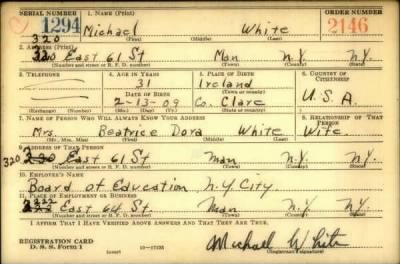 SERIAL NUMBER 1. NAME (Print) ORDER NUMBER
1294 Michael White 2146
(First) (Middle) (Last)
320
2. ADDRESS (Print)
East 61 St Man N.Y. N.Y.
(Number and street or R. F. D. number) (Town) (County) (State)
3. TELEPHONE 4. AGE IN YEARS 5. PLACE OF BIRTH 6. COUNTRY OF CITIZENSHIP
31 Ireland
DATE OF BIRTH (Town or county)
2-13-09 Co. Clare U.S.A.
(Exchange) (Number) (Mo.) (Day) (Yr.) (State or country)
7. NAME OF PERSON WHO WILL ALWAYS KNOW YOUR ADDRESS 8. RELATIONSHIP OF THAT PERSON
Mrs. Beatrice Dora White Wife
(Mr., Mrs., Miss) (First) (Middle) (Last)
9. ADDRESS OF THAT PERSON
320 East 61 St Man N.Y. N.Y.
(Number and street or R. F. D. number) (Town) (County) (State)
10. EMPLOYER'S NAME
Board of Education, N.Y. City
11. PLACE OF EMPLOYMENT OR BUSINESS
222 East 64 St Man N.Y. N.Y.
(Number and street or R. F. D. number) (Town) (County) (State)
I AFFIRM THAT I HAVE VERIFIED ABOVE ANSWERS AND THAT THEY ARE TRUE.
REGISTRATION CARD
D. S. S. Form 1 (over) Michael White
(Registrant's signature)